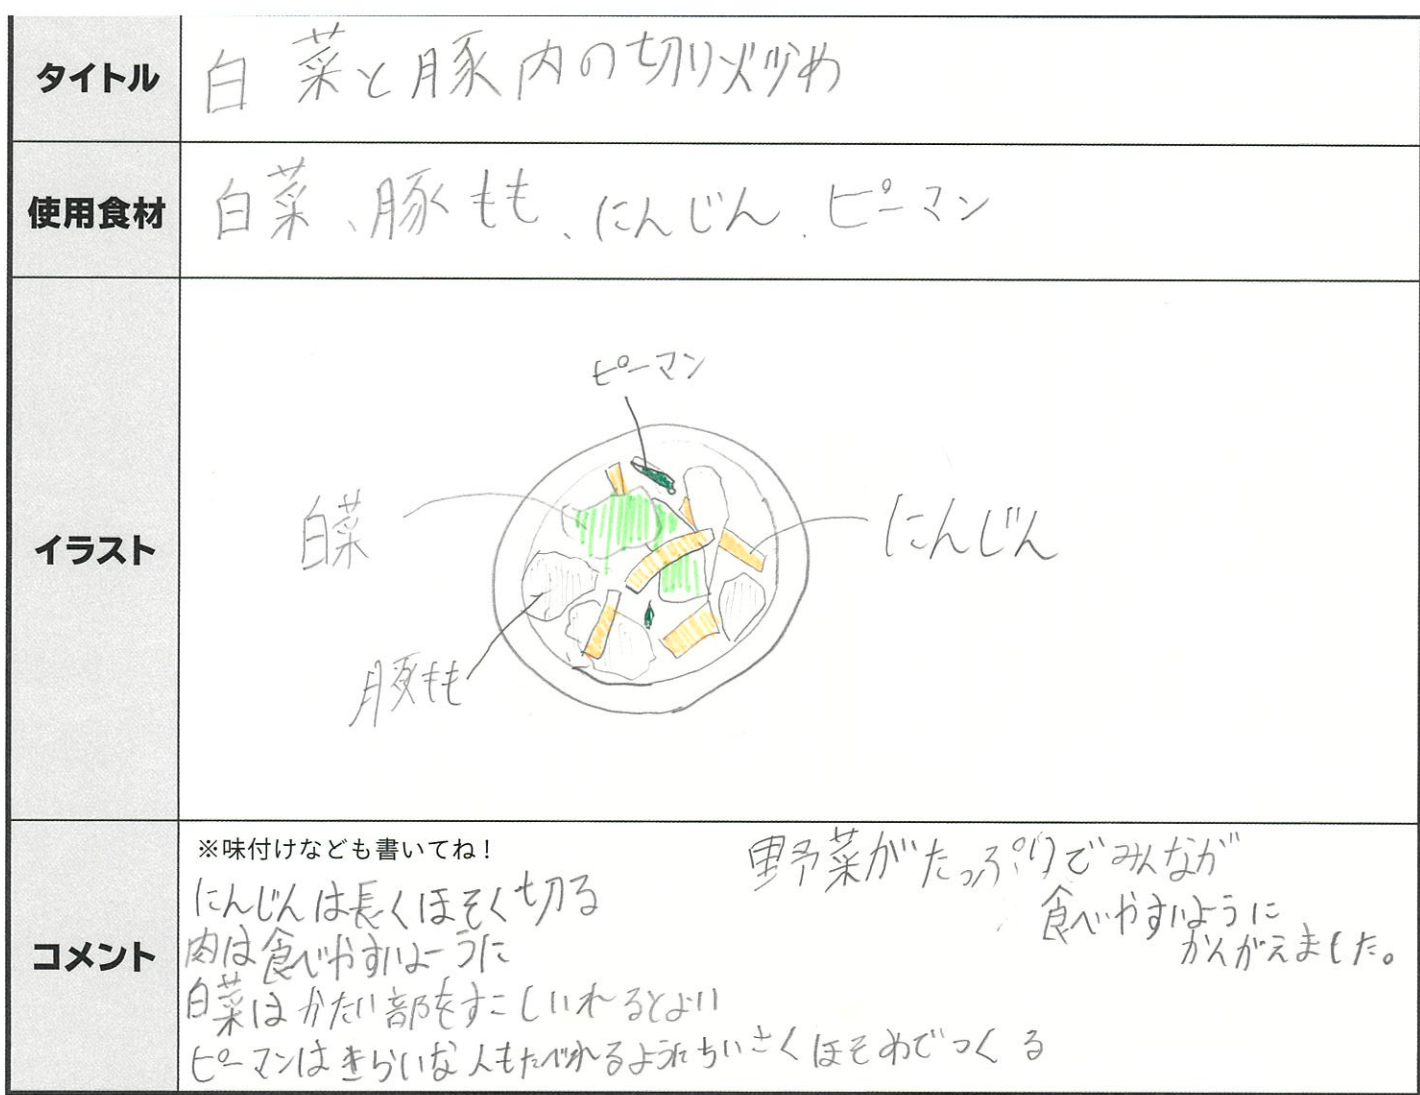 タイトル
白菜と豚肉の切り炒め
使用食材
白菜、豚もも、にんじん、ピーマン
イラスト
ピーマン
白菜
にんじん
豚もも
コメント
※味付けなども書いてね!
にんじんは長くほそく切る
肉は食べやすいように
白菜はかたい部をすこしいれるとよい
ピーマンはきらいな人もたべれるようにちいさくほそめでつくる
野菜がたっぷりでみんなが
食べやすいように
かんがえました。